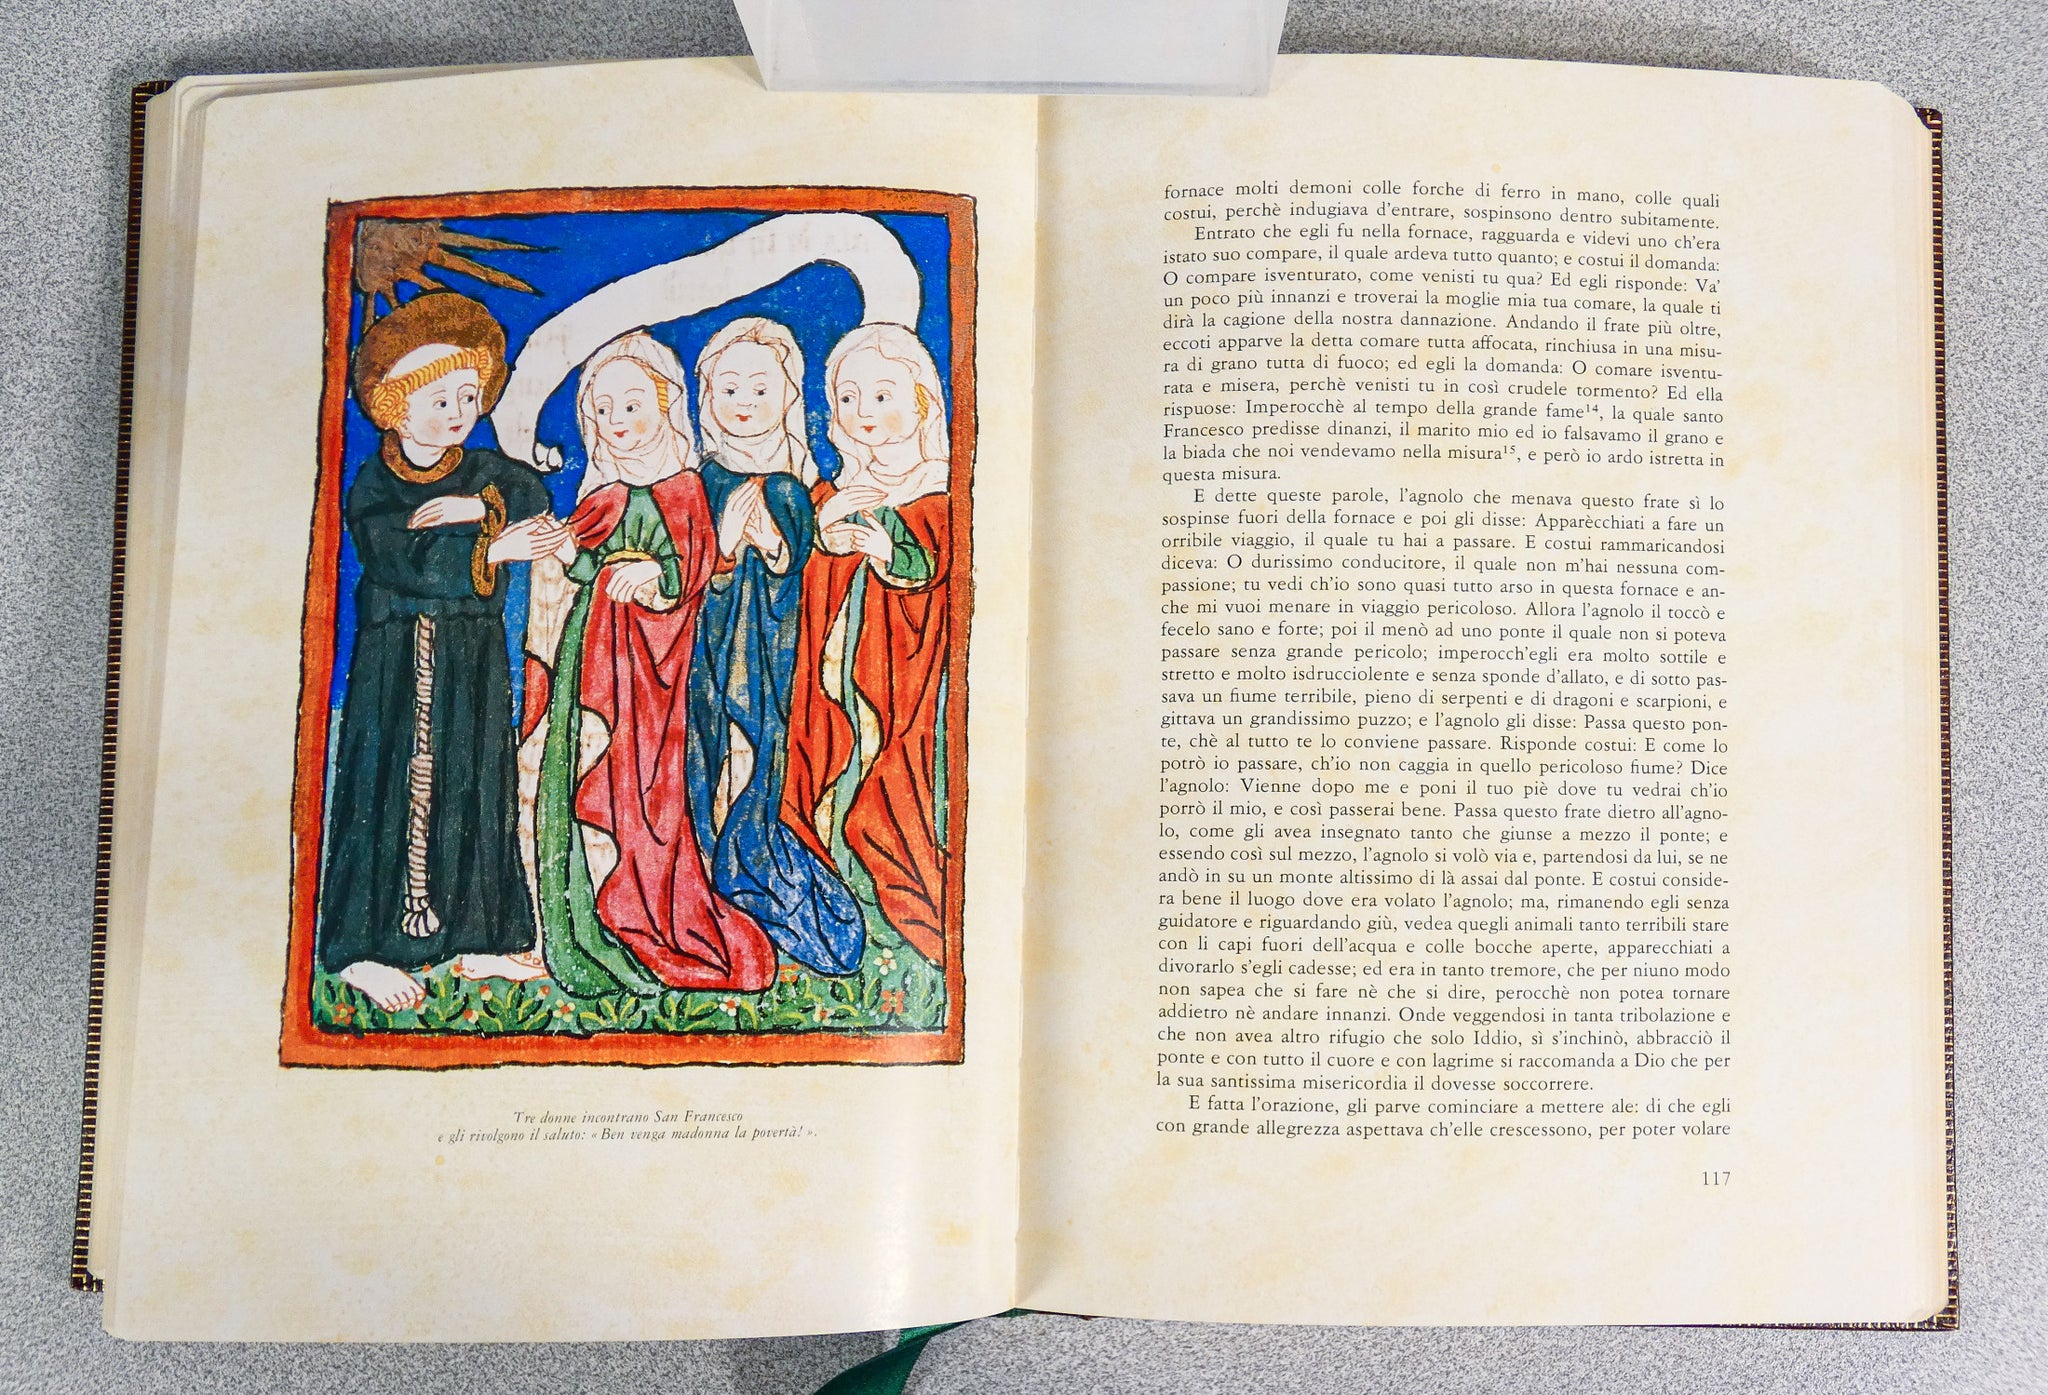 Tre donne incontrano San Francesco
e gli rivolgono il saluto: « Ben venga madonna la povertà! ».
fornace molti demoni colle forche di ferro in mano, colle quali
costui, perchè indugiava d'entrare, sospinsono dentro subitamente.
Entrato che egli fu nella fornace, ragguarda e videvi uno ch'era
istato suo compare, il quale ardeva tutto quanto; e costui il domanda:
O compare isventurato, come venisti tu qua? Ed egli risponde: Va'
un poco più innanzi e troverai la moglie mia tua comare, la quale ti
dirà la cagione della nostra dannazione. Andando il frate più oltre,
eccoti apparve la detta comare tutta affocata, rinchiusa in una misu-
ra di grano tutta di fuoco; ed egli la domanda: O comare isventu-
rata e misera, perchè venisti tu in così crudele tormento? Ed ella
rispuose: Imperocchè al tempo della grande fame¹⁴, la quale santo
Francesco predisse dinanzi, il marito mio ed io falsavamo il grano e
la biada che noi vendevamo nella misura¹⁵, e però io ardo istretta in
questa misura.
E dette queste parole, l'agnolo che menava questo frate sì lo
sospinse fuori della fornace e poi gli disse: Apparècchiati a fare un
orribile viaggio, il quale tu hai a passare. E costui rammaricandosi
diceva: O durissimo conducitore, il quale non m'hai nessuna com-
passione; tu vedi ch'io sono quasi tutto arso in questa fornace e an-
che mi vuoi menare in viaggio pericoloso. Allora l'agnolo il toccò e
fecelo sano e forte; poi il menò ad uno ponte il quale non si poteva
passare senza grande pericolo; imperocch'egli era molto sottile e
stretto e molto isdrucciolente e senza sponde d'allato, e di sotto pas-
sava un fiume terribile, pieno di serpenti e di dragoni e scarpioni, e
gittava un grandissimo puzzo; e l'agnolo gli disse: Passa questo pon-
te, chè al tutto te lo conviene passare. Risponde costui: E come lo
potrò io passare, ch'io non caggia in quello pericoloso fiume? Dice
l'agnolo: Vienne dopo me e poni il tuo piè dove tu vedrai ch'io
porrò il mio, e così passerai bene. Passa questo frate dietro all'agno-
lo, come gli avea insegnato tanto che giunse a mezzo il ponte; e
essendo così sul mezzo, l'agnolo si volò via e, partendosi da lui, se ne
andò in su un monte altissimo di là assai dal ponte. E costui conside-
ra bene il luogo dove era volato l'agnolo; ma, rimanendo egli senza
guidatore e riguardando giù, vedea quegli animali tanto terribili stare
con li capi fuori dell'acqua e colle bocche aperte, apparecchiati a
divorarlo s'egli cadesse; ed era in tanto tremore, che per niuno modo
non sapea che si fare nè che si dire, perocchè non potea tornare
addietro nè andare innanzi. Onde veggendosi in tanta tribolazione e
che non avea altro rifugio che solo Iddio, sì s'inchinò, abbracciò il
ponte e con tutto il cuore e con lagrime si raccomanda a Dio che per
la sua santissima misericordia il dovesse soccorrere.
E fatta l'orazione, gli parve cominciare a mettere ale: di che egli
con grande allegrezza aspettava ch'elle crescessono, per poter volare
117